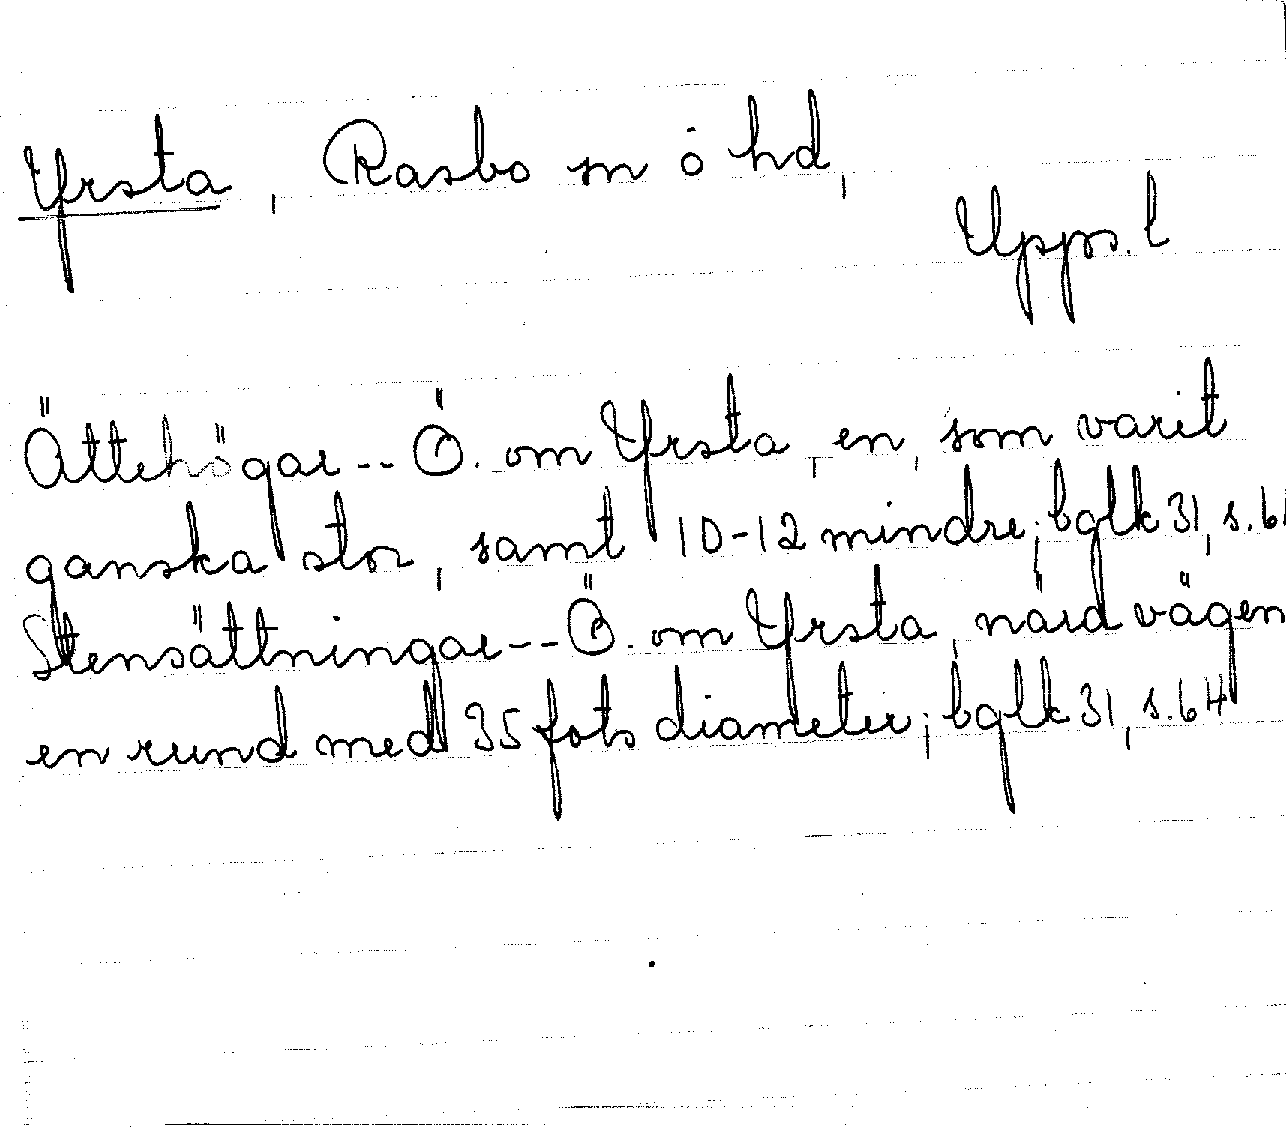 Yrsta, Rasbo sn o hd,
Upps. l
Ättehögar -- Ö. om Yrsta, en, som varit
ganska stor, samt 10-12 mindre; bglk 31, s.
Stensättningar -- Ö. om Yrsta, närd vägen
en rund med 35 fots diameter; bglk 31, s. 64